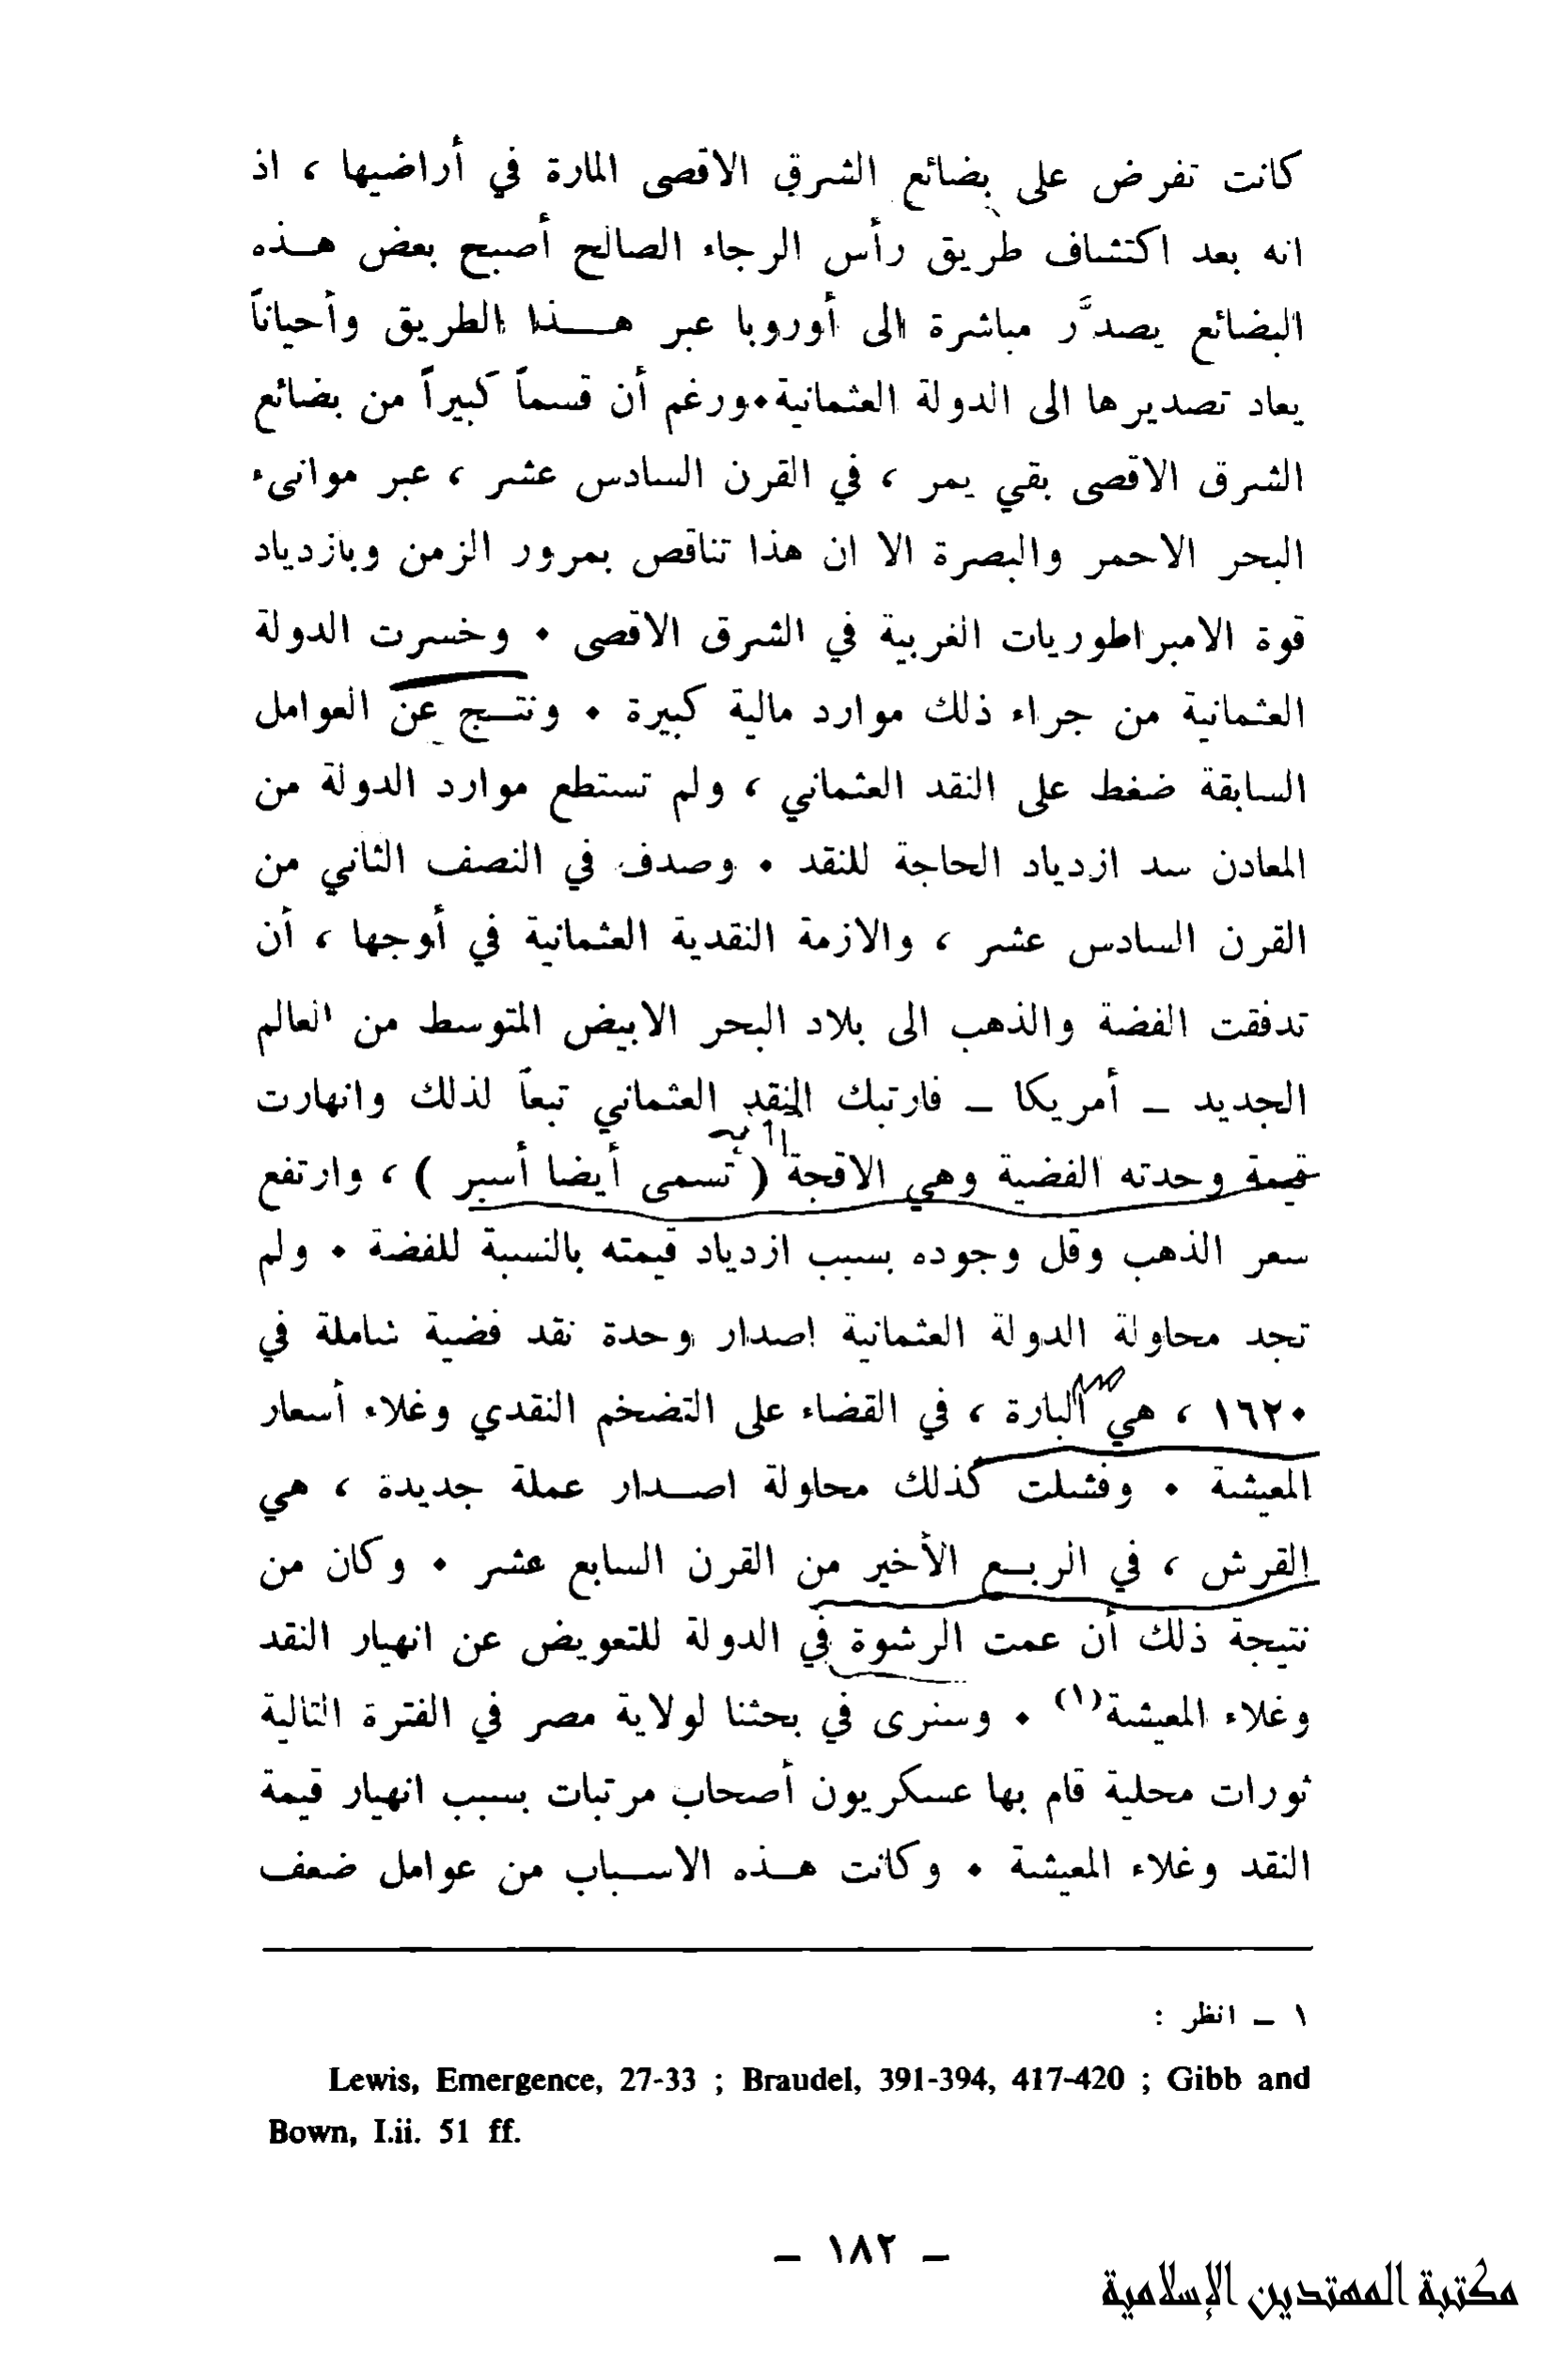 كانت تفرض على بضائع الشرق الاقصى المارة في أراضيها ، اذ
انه بعد اكتشاف طريق رأس الرجاء الصالح أصبح بعض هـذه
البضائع يصدَّر مباشرة الى أوروبا عبر هـذا الطريق وأحياناً
يعاد تصديرها الى الدولة العثمانية٠ورغم أن قسماً كبيراً من بضائع
الشرق الاقصى بقي يمر ، في القرن السادس عشر ، عبر موانىء
البحر الاحمر والبصرة الا ان هذا تناقص بمرور الزمن وبازدياد
قوة الامبراطوريات الغربية في الشرق الاقصى ٠ وخسرت الدولة
العثمانية من جراء ذلك موارد مالية كبيرة ٠ ونتـج عن العوامل
السابقة ضغط على النقد العثماني ، ولم تستطع موارد الدولة من
المعادن سد ازدياد الحاجة للنقد ٠ وصدف في النصف الثاني من
القرن السادس عشر ، والازمة النقدية العثمانية في أوجها ، أن
تدفقت الفضة والذهب الى بلاد البحر الابيض المتوسط من العالم
الجديد ـ أمريكا ـ فارتبك النقد العثماني تبعاً لذلك وانهارت
قيمة وحدته الفضية وهي الاقجة ( تسمى أيضا أسبر ) ، وارتفع
سعر الذهب وقل وجوده بسبب ازدياد قيمته بالنسبة للفضة ٠ ولم
تجد محاولة الدولة العثمانية اصدار وحدة نقد فضية شاملة في
١٦٢٠ ، هي البارة ، في القضاء على التضخم النقدي وغلاء أسعار
المعيشة ٠ وفشلت كذلك محاولة اصـدار عملة جديدة ، هي
القرش ، في الربـع الأخير من القرن السابع عشر ٠ وكان من
نتيجة ذلك أن عمت الرشوة في الدولة للتعويض عن انهيار النقد
وغلاء المعيشة(١) ٠ وسنرى في بحثنا لولاية مصر في الفترة التالية
ثورات محلية قام بها عسكريون أصحاب مرتبات بسبب انهيار قيمة
النقد وغلاء المعيشة ٠ وكانت هـذه الاسـباب من عوامل ضعف
١ ـ انظر :
Lewis, Emergence, 27-33 ; Braudel, 391-394, 417-420 ; Gibb and
Bown, I.ii. 51 ff.
ـ ١٨٢ ـ
مكتبة المهتدين الإسلامية